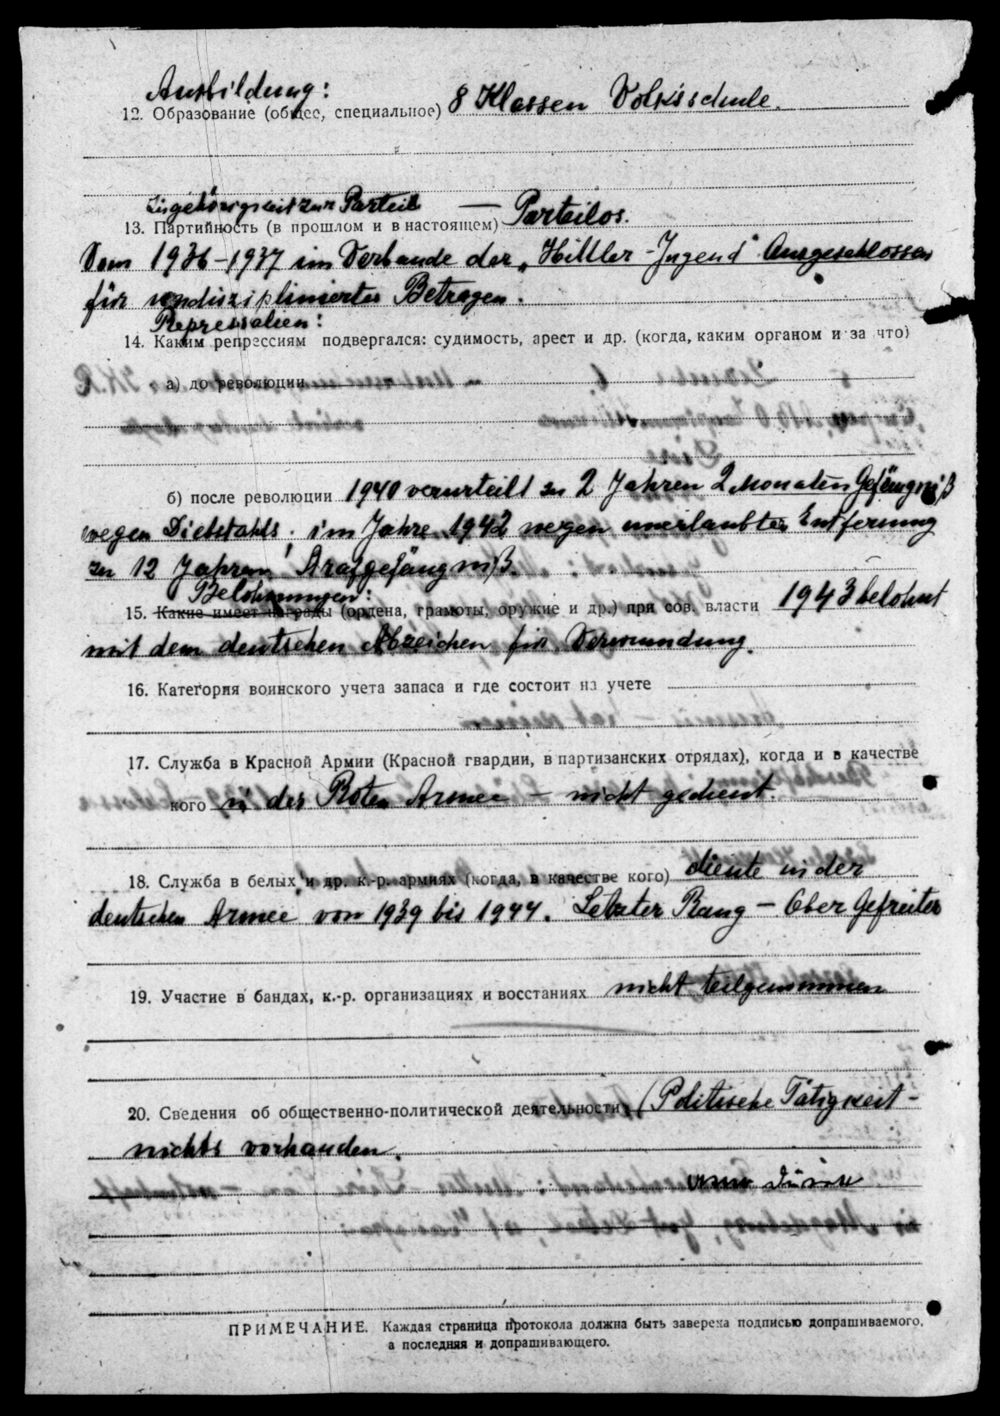 Ausbildung:
12. Образование (общее, специальное) 8 Klassen Volksschule.
Zugehörigkeit zur Partei
13. Партийность (в прошлом и в настоящем) — Parteilos.
Vom 1936–1937 im Verbande der „Hittler-Jugend" Ausgeschlossen
für undiszipliniertes Betragen.
Repressalien:
14. Каким репрессиям подвергался: судимость, арест и др. (когда, каким органом и за что)
а) до революции
б) после революции 1940 verurteilt zu 2 Jahren 2 Monaten Gefängniß
wegen Diebstahls; im Jahre 1942 wegen unerlaubter Entfernung
zu 12 Jahren Strafgefängniß.
Belohnungen:
15. Какие имеет награды (ордена, грамоты, оружие и др.) при сов. власти 1943 belohnt
mit dem deutschen Abzeichen für Verwundung.
16. Категория воинского учета запаса и где состоит на учете
17. Служба в Красной Армии (Красной гвардии, в партизанских отрядах), когда и в качестве
кого in der Roten Armee — nicht gedient.
18. Служба в белых и др. к.-р. армиях (когда, в качестве кого) diente in der
deutschen Armee von 1939 bis 1944. Letzter Rang — Ober Gefreiter
19. Участие в бандах, к.-р. организациях и восстаниях nicht teilgenommen
20. Сведения об общественно-политической деятельности (Politische Tätigkeit –
nichts vorhanden.
ПРИМЕЧАНИЕ. Каждая страница протокола должна быть заверена подписью допрашиваемого,
а последняя и допрашивающего.